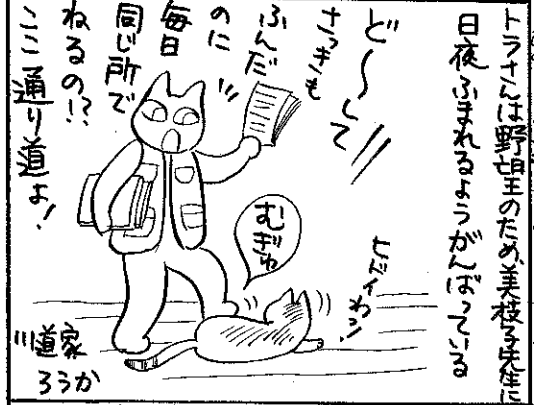 トラさんは野望のため、美枝子先生に
日夜ふまれるようがんばっている
ど〜〜して
さっきも
ふんだ
のに
毎日
同じ所で
ねるの!?
ここ通り道よ!
むぎゅ
ヒドイわッ
川道家
ろうか